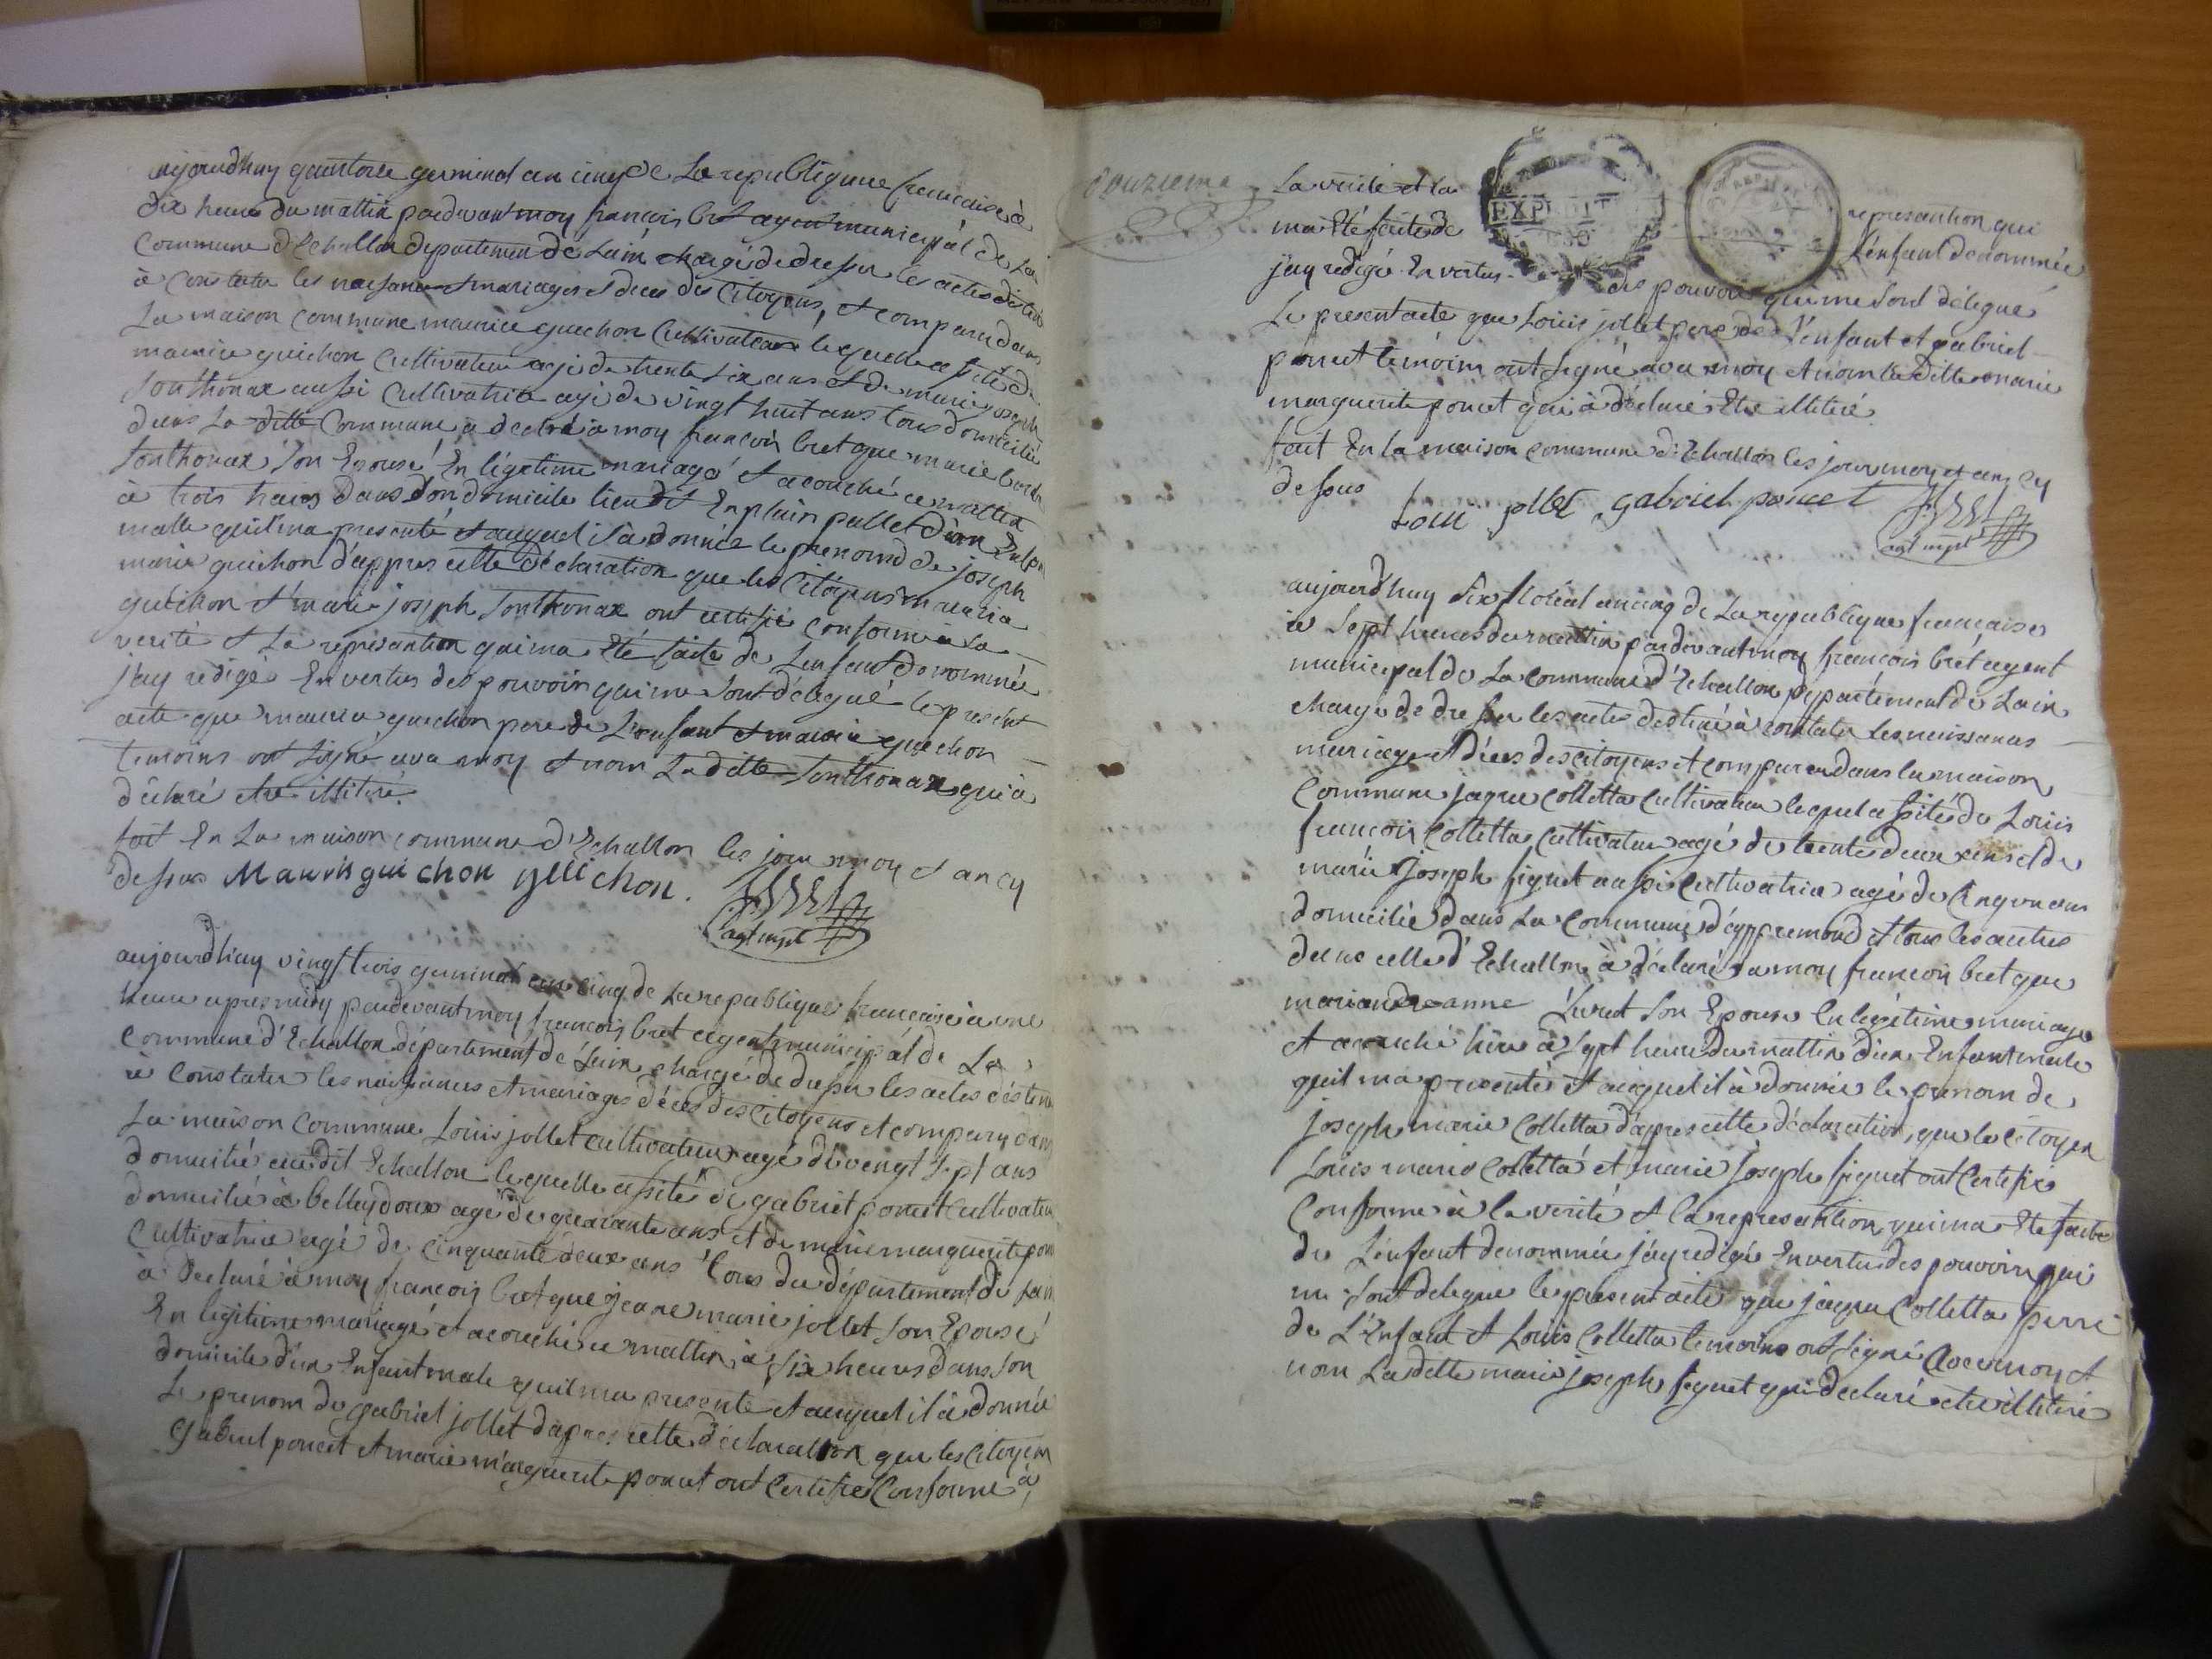 aujourdhuy quatorze germinal an cinq de La republique francaise à
dix heure du mattin pardevant moy francois bret agent municipál de La
Commune d'Echallon departement de Lain chargé de dresser les actes destiné
à Constater les naissances et mariages et deces des Citoyens, et comparu dans
La maison Commune maurice guichon Cultivateur lequel assité de
maurice guichon Cultivateur agé de trente six ans et de marie joseph
Sonthonax aussi Cultivatrice agé de vingt huit ans tous domicilié
dans La ditte Commune a declaré à moy francois bret que marie
Sonthonax Son Epousé En légitime mariagé et acouché ce mattin
à trois heures dans Son domicile lieu dit En plain pallet d'un Enfant
malle quil ma presenté et auquel il à donnée le prenom de joseph
marie guichon dappres cette déclaration que les Citoyens maurice
guichon et marie joseph Sonthonax ont certifié conforme à la
verité et La represantion qui ma Eté faite de Lenfant denommée
jay redigé En vertus des pouvoir qui me Sont délegué le présent
acte que maurice guichon pere de Lenfant et maurice guichon
temoins ont Signé avec moy et nom La ditte Sonthonax qui à
déclaré etre illiteré.
fait En La maison commune d'Echallon les jour moy et an cy
dessus Mauris guichon guichon.
agt mpl
aujourdhuy vingt trois germinal an cinq de La republique francaise à une
heure apres midy pardevant moy francois bret agent municipál de La
Commune d'Echallon département de Lain chargé de dresser les actes déstiné
à Constater les naissances et mariages déces des Citoyens et comparu dans
La maison Commune Louis jollet cultivateur agé de vingt sept ans
domicilié au dit Echallon lequelle assité de gabriel poncet Cultivateur
domicilié à belleydoux agé de quarante ans et de marie marguerite poncet
Cultivatrice agé de cinquante deux ans tous du département de Lain
à declaré à moy francois bret que jeane marie jollet Son Epousé
En légitime mariagé et acouché ce mattin à Six heures dans Son
domicile d'un Enfant male quil ma presenté et auquel il à donnée
Le prenom de gabriel jollet dapres cette déclaration que les Citoyens
gabriel poncet et marie marguerite poncet ont Certifies Conforme à
douzieme
La verité et la represantion qui
ma Eté faite de Lenfant denommée
jay redigé En vertus des pouvoir qui me Sont délegué
Le present acte que Louis jollet pere de Lenfant et gabriel
poncet temoins ont Signé avec moy et nom la ditte marie
marguerite poncet qui à déclaré Etre illiteré
fait En la maison Commune d'Echallon les jour moy et an cy
dessus
Loui jollet gabriel poncet
agt mpl
aujourd'huy Six floréal an cinq de La republique francaise
à Sept heures du mattin pardevant moy francois bret agent
municipal de La Commune d'Echallon département de Lain
chargé de dresser les actes destiné à constater les naissances
mariage et déces des citoyens et comparu dans la maison
Commune jaque Colletta Cultivateur lequel assité de Louis
francois Colletta Cultivateur agé de trente deux ans et de
marie Joseph figuet aussi Cultivatrice agé de Cinq
domicilié dans La Commune d'appremond et tous les autres
dans celle d'Echallon à déclaré a moy francois bret que
anne Livret Son Epouse En légitime mariage
et acouché hier à Sept heure du mattin d'un Enfant male
quil ma presentée et auquel il à donnée le prenom de
joseph marie Colletta dapres cette déclaration, que le Citoyen
Louis marie Colletta et marie Joseph figuet ont Certifié
Conforme à la verité et la represantion qui ma Eté faite
de Lenfant denommée jay redigée En vertu des pouvoir qui
me Sont delegue le present acte que jaque Colletta perre
de L'Enfant et Louis Colletta temoins ont Signé avec moy et
nom La ditte marie joseph figuet qui declaré etre illiteré